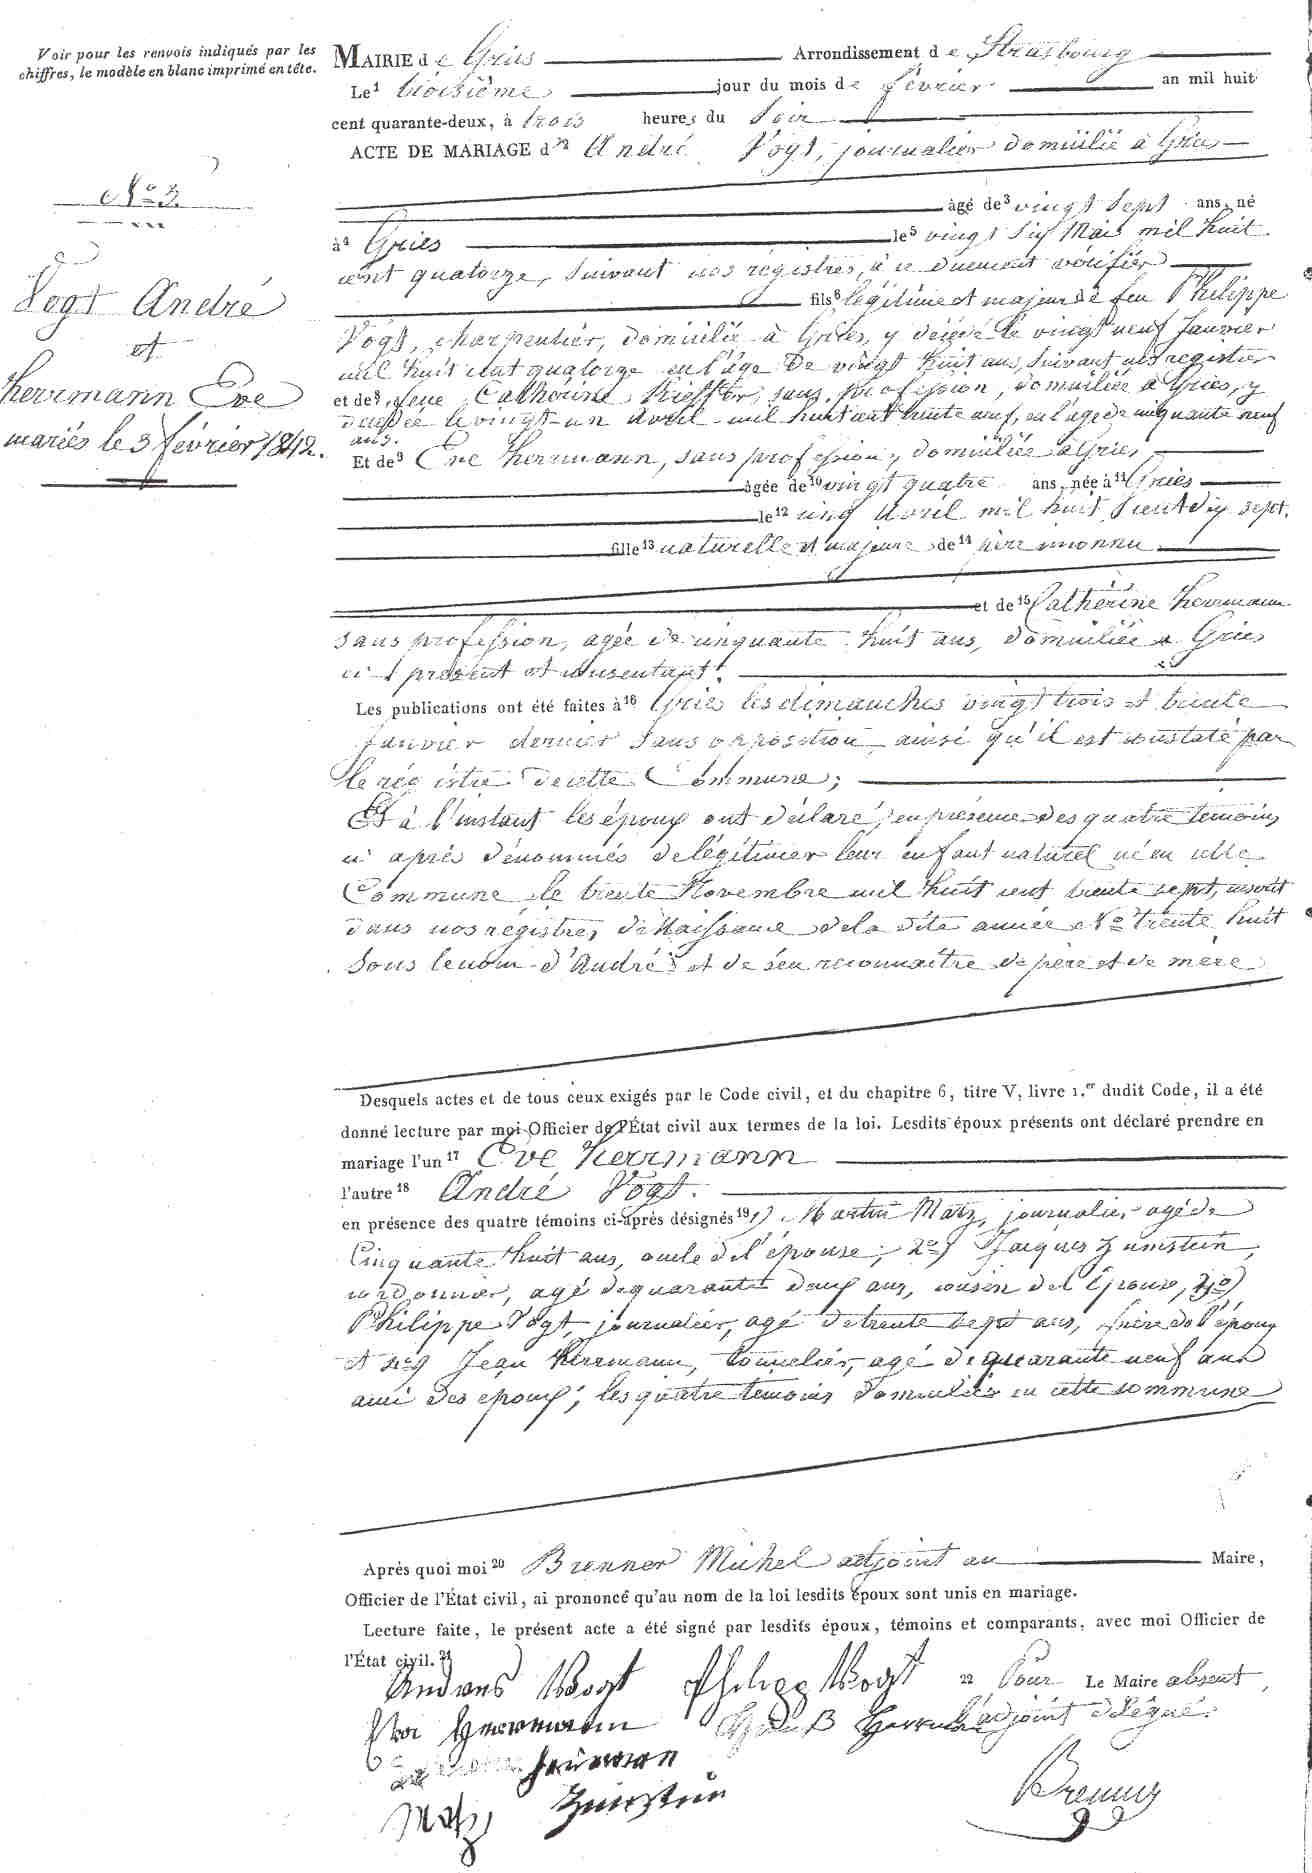 Voir pour les renvois indiqués par les
chiffres, le modèle en blanc imprimé en tête.
No 3.
Vogt André
et
Herrmann Eve
mariés le 3 février 1842.
MAIRIE de Gries Arrondissement de Strasbourg
Le1 troisième jour du mois de février an mil huit
cent quarante-deux, à trois heures du soir
ACTE DE MARIAGE de André Vogt, journalier domicilié à Gries
âgé de3 vingt sept ans, né
à4 Gries le5 vingt six Mai mil huit
cent quatorze, suivant nos régistres, à ce duement vérifiér
fils6 légitime et majeur de feu Philippe
Vogt, charpentier, domicilié à Gries, y décédé le vingt neuf Janvier
mil huit cent quatorze en l'âge de vingt huit ans, suivant nos registres
et de8 feue Cathérine Kieffer, sans profession, domiciliée à Gries, y
décédée le vingt-un Avril mil huit cent trente neuf, en l'age de cinquante neuf
ans.
Et de9 Eve Herrmann, sans profession, domiciliée à Gries
âgée de10 vingt quatre ans, née à11 Gries
le12 cinq Avril mil huit cent dix sept.
fille13 naturelle et majeure de14 père inconnu
et de15 Cathérine Herrmann
sans profession, agée de cinquante huit ans, domiciliée à Gries
ci présent et consentant.
Les publications ont été faites à16 Gries les dimanches vingt trois et trente
Janvier dernier sans opposition, ainsi qu'il est constaté par
le régistre de cette Commune;
Et à l'instant les époux ont déclaré, en présence des quatre temoins
ci après dénommés de légitimer leur enfant naturel né en cette
Commune le trente Novembre mil huit cent trente sept, inscrit
dans nos régistres de Naissance de la dite année No trente huit
sous le nom d'André et de s'en reconnaître de père et de mère
Desquels actes et de tous ceux exigés par le Code civil, et du chapitre 6, titre V, livre 1.er dudit Code, il a été
donné lecture par moi Officier de l'État civil aux termes de la loi. Lesdits époux présents ont déclaré prendre en
mariage l'un17 Eve Herrmann
l'autre18 André Vogt.
en présence des quatre témoins ci-après désignés19 1) Martin Matz, journalier agé de
Cinquante huit ans, oncle de l'épouse; 2o) Jacques Zumstein,
cordonnier, agé de quarante deux ans, cousin de l'Epouse, 3o)
Philippe Vogt, journalier, agé de trente sept ans, frère de l'époux
et 4o) Jean Herrmann, tonnelier, agé de quarante neuf ans
ami des époux; les quatre temoins domiciliés en cette commune
Après quoi moi20 Brenner Michel adjoint au Maire,
Officier de l'État civil, ai prononcé qu'au nom de la loi lesdits époux sont unis en mariage.
Lecture faite, le présent acte a été signé par lesdits époux, témoins et comparants, avec moi Officier de
l'État civil.21
Andreas Vogt Philipp Vogt 22 Pour Le Maire absent,
Eva Herrmann l'adjoint délégué.
Matz Zumstein Brenner